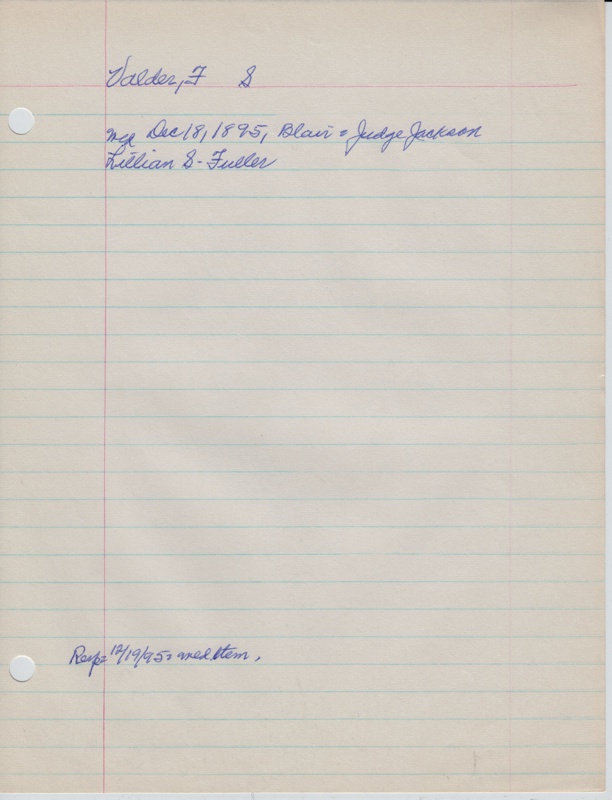 Valder, F S
med Dec 18, 1895, Blair = Judge Jackson
Lillian S. Fuller
12/19/95 = med. Item.